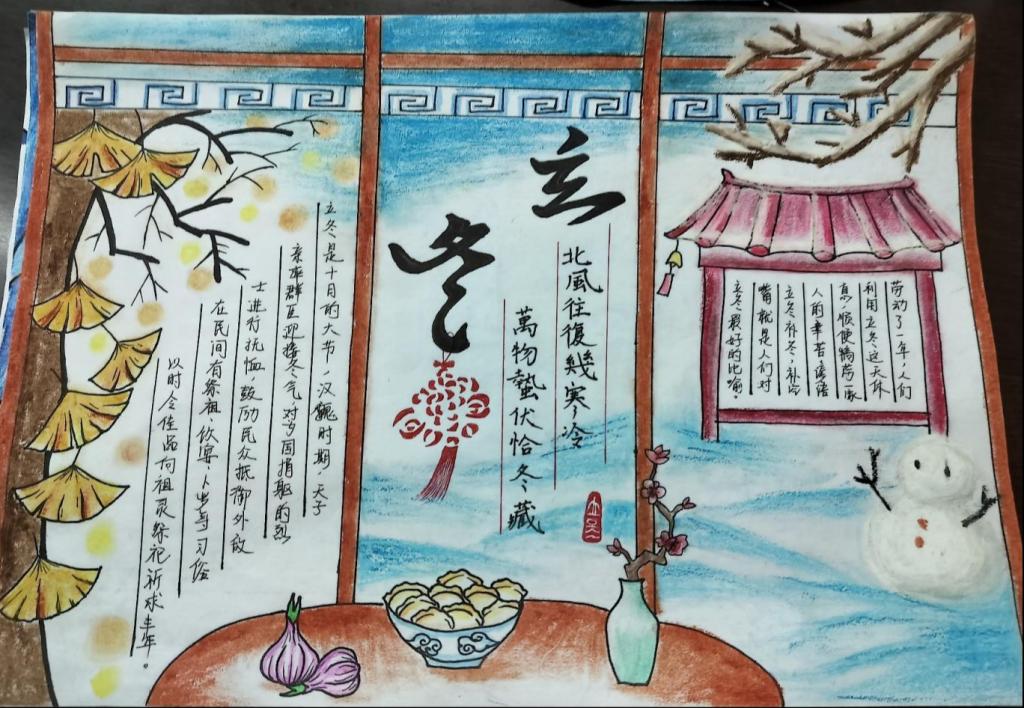 劳动了一年，人们
利用立冬这天休
息，顺便犒劳一家
人的辛苦。谚语
立冬补冬，补空
嘴就是人们对
立冬最好的比喻。
立冬
北風往復幾寒冷
萬物蟄伏恰冬藏
立冬
立冬是十月的大节，汉魏时期，天子
亲率群臣迎接冬气，对为国捐躯的烈
士进行抚恤，鼓励民众抵御外敌
在民间有祭祖、饮宴、卜岁等习俗
以时令佳品向祖灵祭祀祈求丰年。